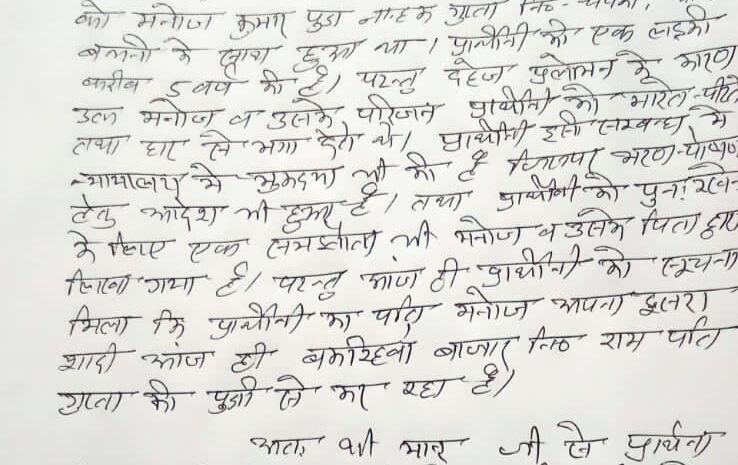 को मनोज कुमार पुत्र नान्हक गुप्ता नि०
के साथ हुआ था। प्रार्थीनी को एक लड़की
करीब 5 वर्ष की है। परन्तु दहेज प्रलोभन के कारण
उक्त मनोज व उसके परिजन प्रार्थीनी को मारते-पीटते
तथा घर से भगा देते थे। प्रार्थीनी इसी सम्बन्ध मे
न्यायालय मे मुकदमा भी की है जिसपर भरण-पोषण
हेतु आदेश भी हुआ है। तथा प्रार्थीनी को पुनः रखने
के लिए एक समझौता भी मनोज व उसके पिता द्वारा
लिखा गया है। परन्तु आज ही प्रार्थीनी को सूचना
मिला कि प्रार्थीनी का पति मनोज अपना दूसरा
शादी आज ही बाजार नि० राम पति
गुप्ता की पुत्री से कर रहा है।
अतः श्री मान जी से प्रार्थना